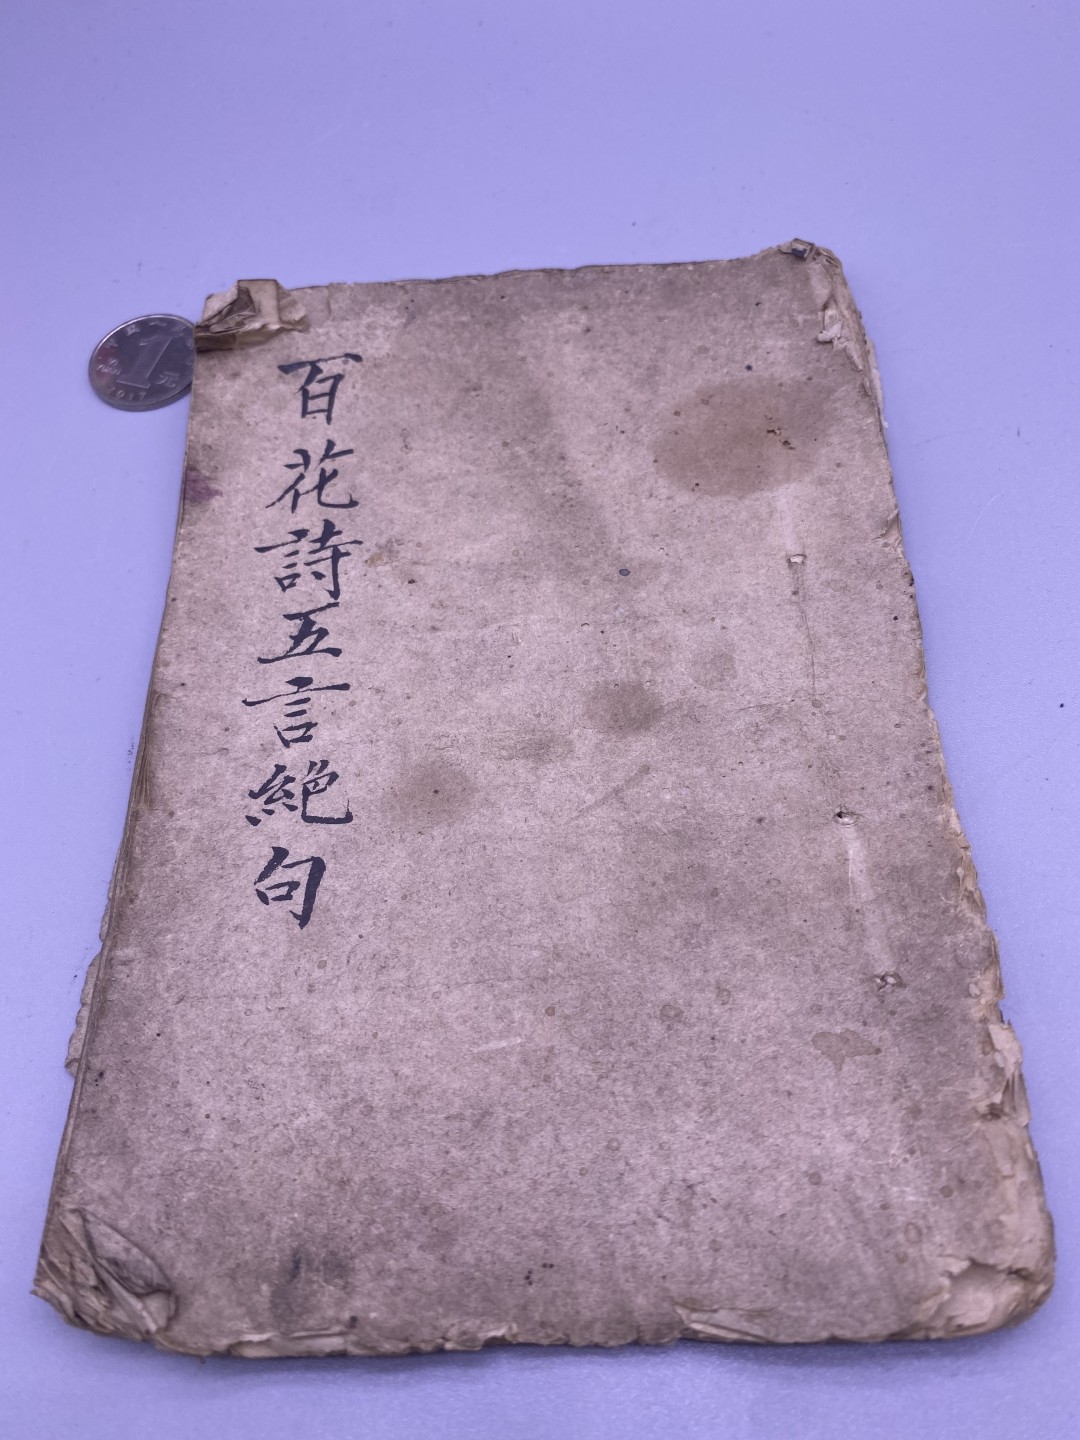 百花詩五言絕句
1
元
2017